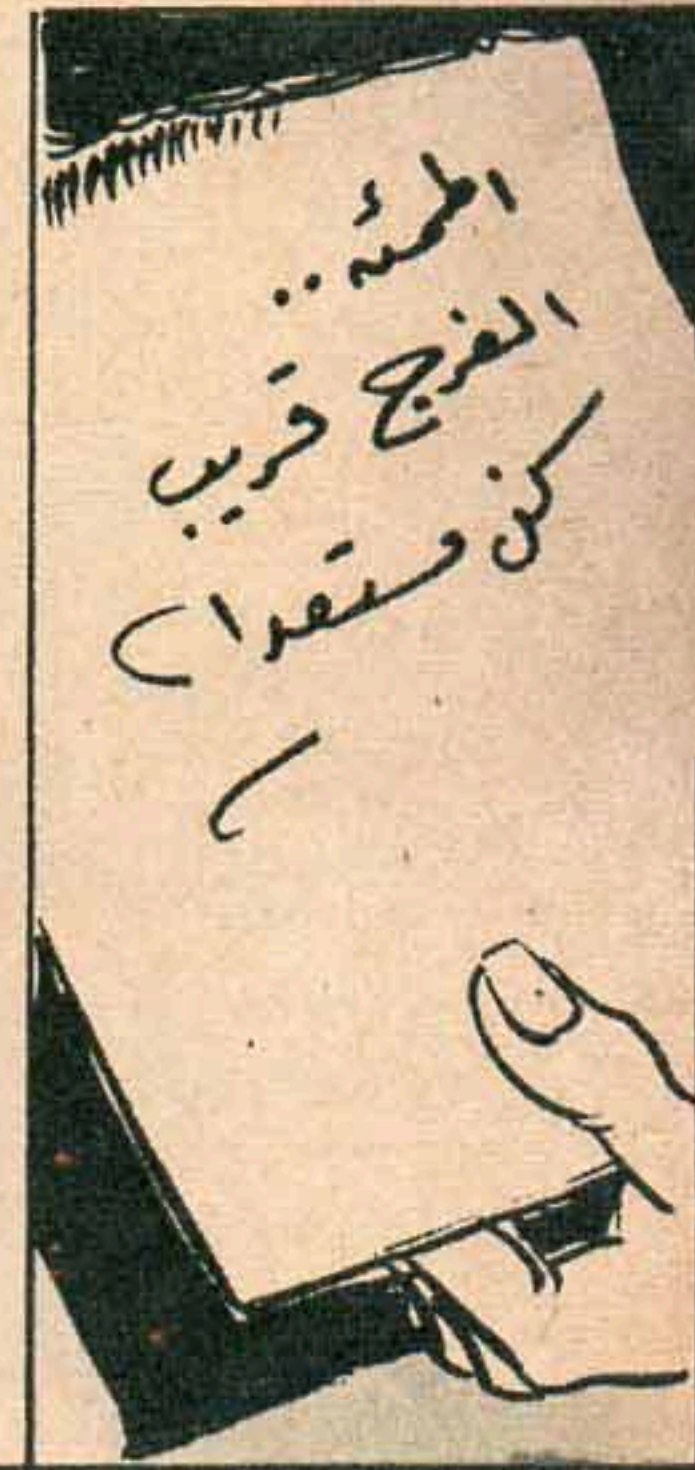 اطمئن ..
الفرج قريب
كن مستعدا